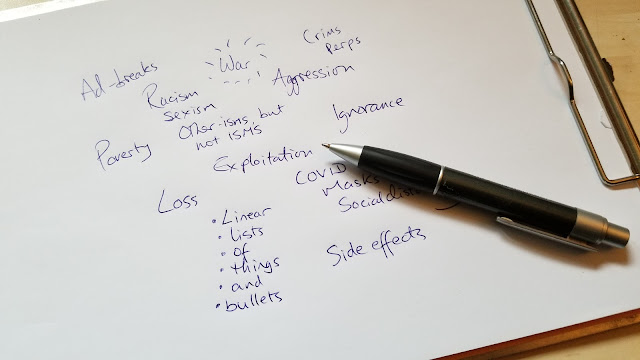 Ad-breaks
War
Crims
Perps
Racism
sexism
Aggression
Other-isms, but
not ISMS
Ignorance
Poverty
Exploitation
Loss
COVID
Masks
• Linear
• lists
• of
• things
• and
• bullets
Side effects